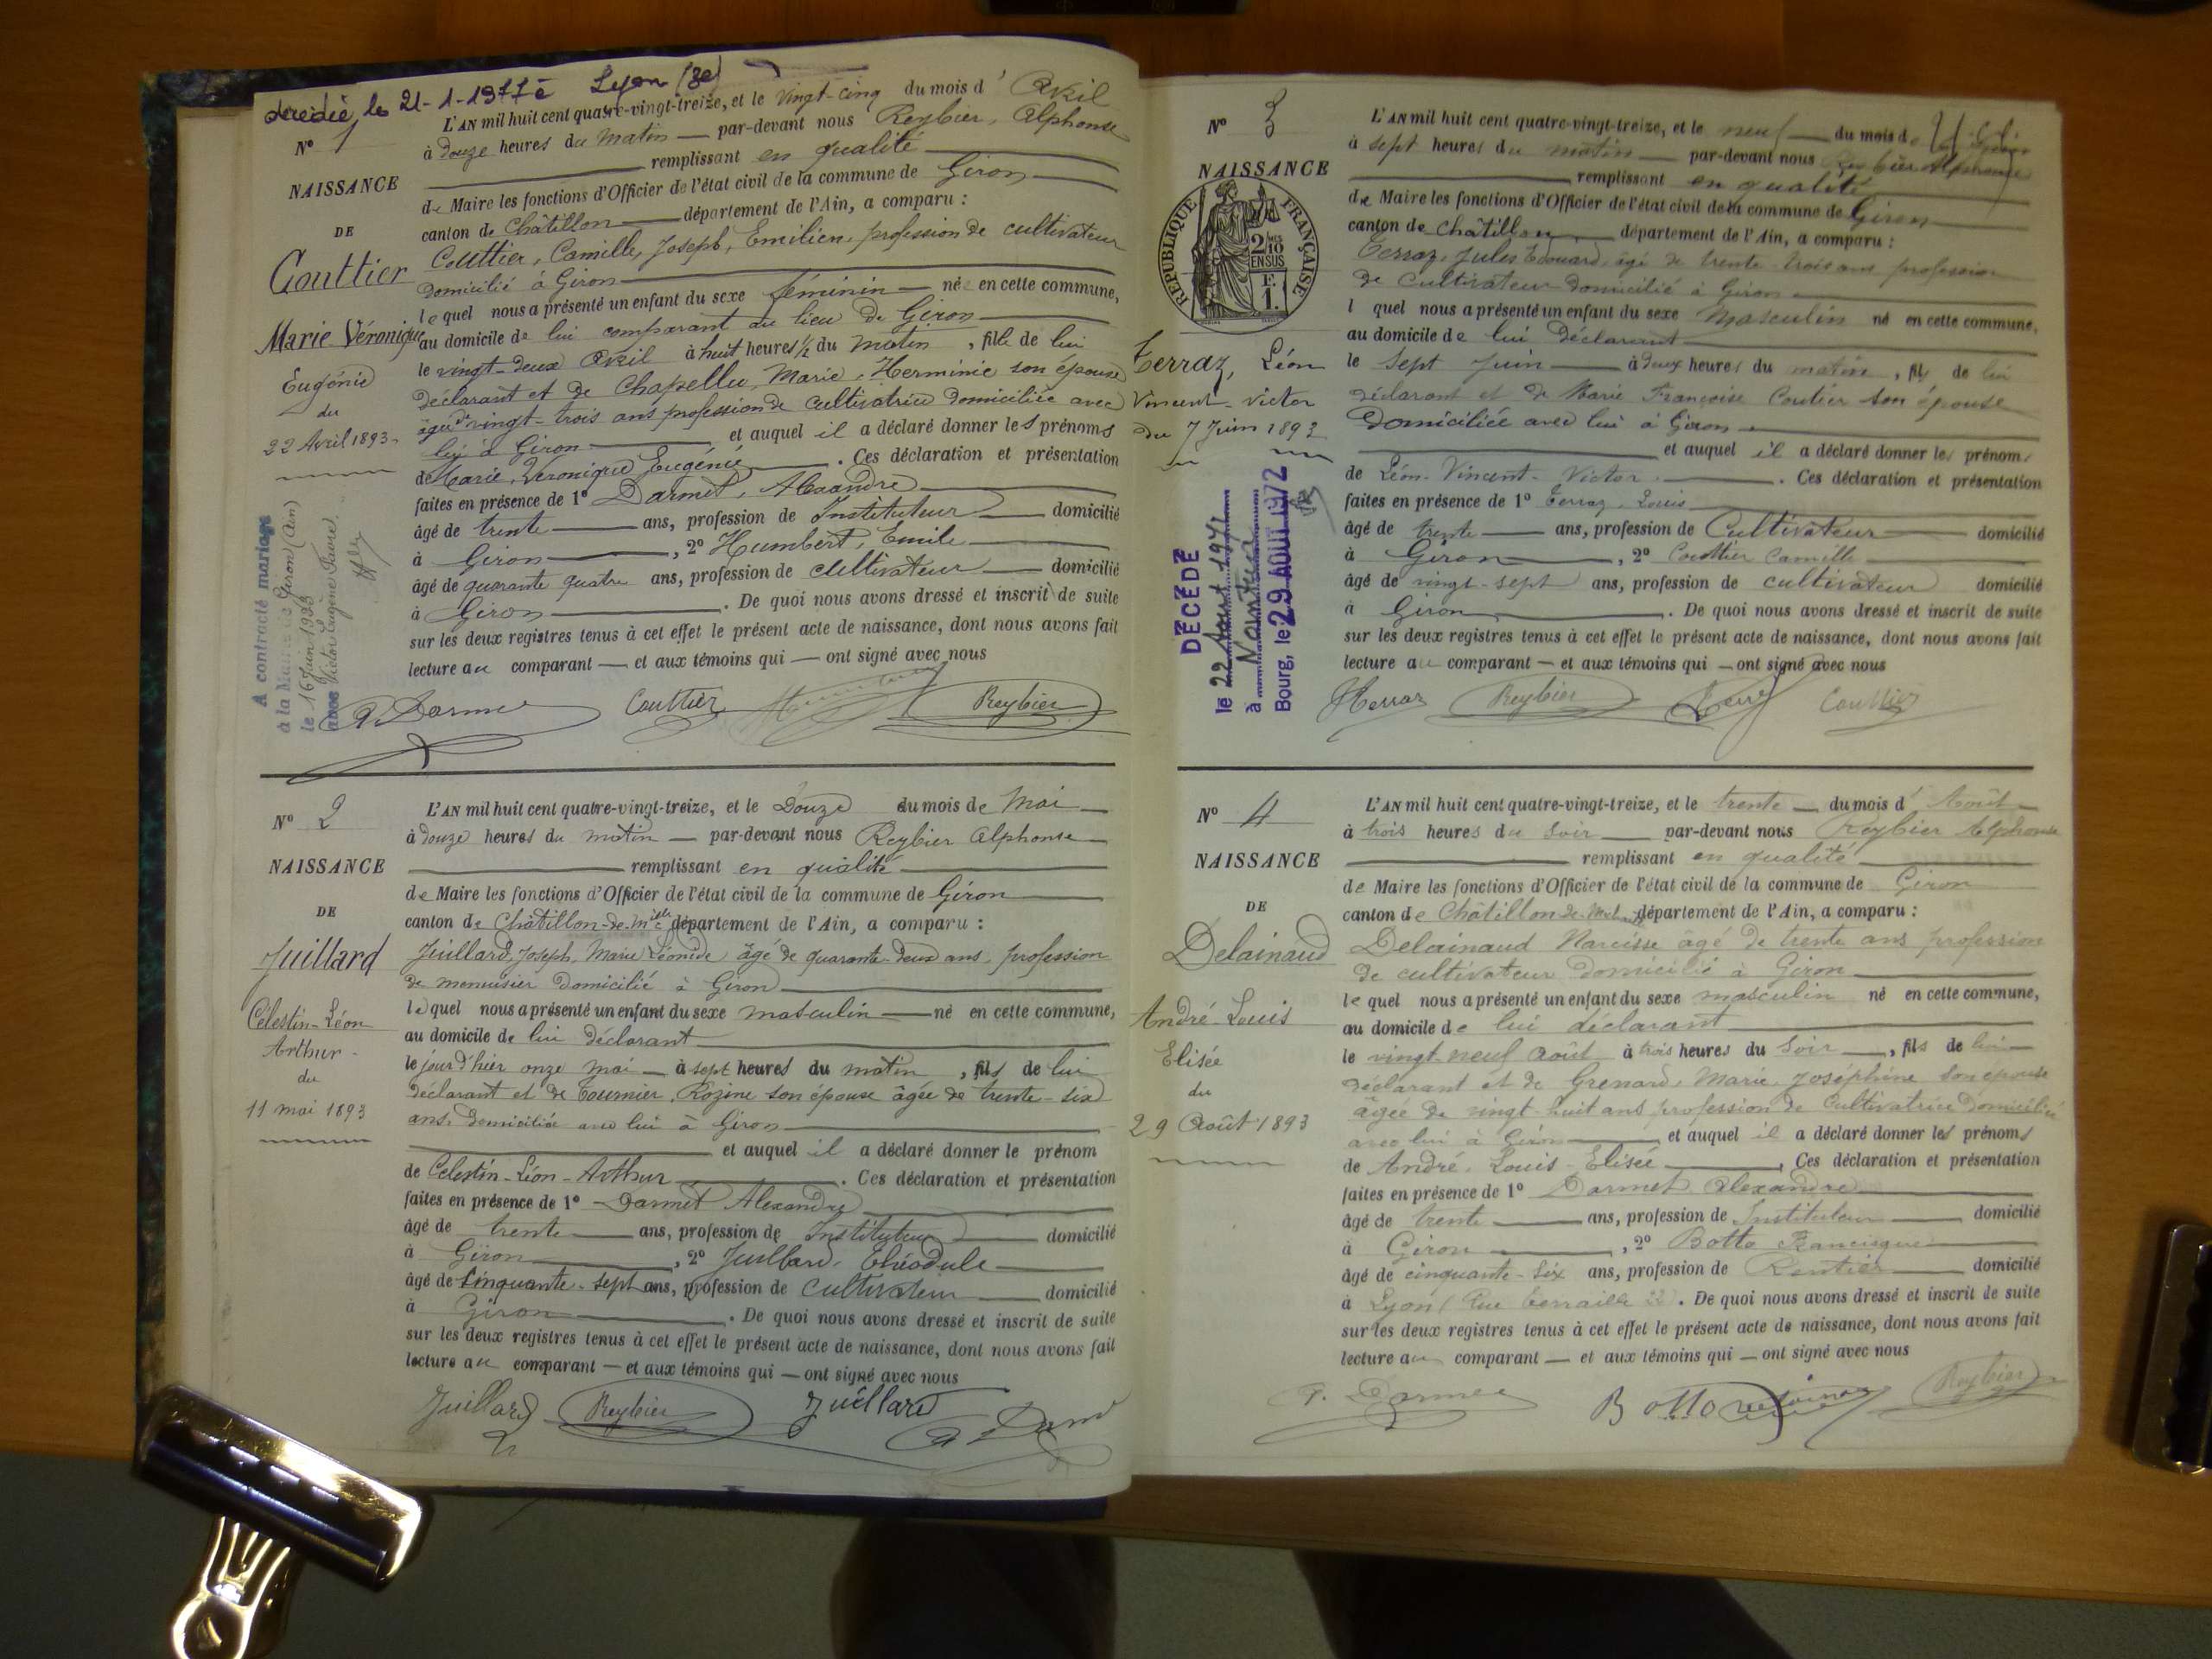 decedée le 21-1-1977 à Lyon (3e)
N° 1
NAISSANCE
DE
Couttier
Marie Véronique
Eugénie
du
22 Avril 1893
A contracté mariage
à la Mairie de Giron (Ain)
le 16 Juin 1923
avec Victor Eugène Favre
L'AN mil huit cent quatre-vingt-treize, et le vingt-cinq du mois d' Avril
à douze heures du matin par-devant nous Reybier, Alphonse
remplissant en qualité
de Maire les fonctions d'Officier de l'état civil de la commune de Giron
canton de Châtillon département de l'Ain, a comparu :
Couttier, Camille, Joseph, Emilien, profession de cultivateur
domicilié à Giron
lequel nous a présenté un enfant du sexe féminin née en cette commune,
au domicile de lui comparant au lieu de Giron
le vingt-deux Avril à huit heures 1/2 du matin, fille de lui
déclarant et de Chapellu, Marie, Herminie son épouse
âgée de vingt-trois ans profession de cultivatrice domiciliée avec
lui à Giron et auquel il a déclaré donner les prénoms
de Marie, Véronique Eugénie. Ces déclaration et présentation
faites en présence de 1° Darmet, Alexandre
âgé de trente ans, profession de Instituteur domicilié
à Giron, 2° Humbert, Emile
âgé de quarante quatre ans, profession de cultivateur domicilié
à Giron. De quoi nous avons dressé et inscrit de suite
sur les deux registres tenus à cet effet le présent acte de naissance, dont nous avons fait
lecture au comparant et aux témoins qui ont signé avec nous
A. Darmet Couttier Reybier
N° 2
NAISSANCE
DE
Juillard
Célestin-Léon
Arthur
du
11 mai 1893
L'AN mil huit cent quatre-vingt-treize, et le Douze du mois de Mai
à douze heures du matin par-devant nous Reybier Alphonse
remplissant en qualité
de Maire les fonctions d'Officier de l'état civil de la commune de Giron
canton de Châtillon-de-Mlle département de l'Ain, a comparu :
Juillard, Joseph, Marie Léonide âgé de quarante-deux ans, profession
de menuisier domicilié à Giron
lequel nous a présenté un enfant du sexe masculin né en cette commune,
au domicile de lui déclarant
le jour d'hier onze mai à sept heures du matin, fils de lui
déclarant et de Tournier, Rozine son épouse âgée de trente-six
ans, domiciliée avec lui à Giron
et auquel il a déclaré donner le prénom
de Célestin-Léon-Arthur. Ces déclaration et présentation
faites en présence de 1° Darmet Alexandre
âgé de trente ans, profession de Instituteur domicilié
à Giron, 2° Juillard, Théodule
âgé de Cinquante-sept ans, profession de cultivateur domicilié
à Giron. De quoi nous avons dressé et inscrit de suite
sur les deux registres tenus à cet effet le présent acte de naissance, dont nous avons fait
lecture au comparant et aux témoins qui ont signé avec nous
Juillard Reybier Juillard A Darmet
N° 3
NAISSANCE
REPUBLIQUE FRANÇAISE
2/10 EN SUS
F. 1.
Terraz, Léon
Vincent-Victor
du 7 Juin 1893
DÉCÉDÉ
le 22 Aout 1972
à Nantua
Bourg, le 29 AOUT 1972
L'AN mil huit cent quatre-vingt-treize, et le neuf du mois de
à sept heures du matin par-devant nous Reybier Alphonse
remplissant en qualité
de Maire les fonctions d'Officier de l'état civil de la commune de Giron
canton de Châtillon département de l'Ain, a comparu :
Terraz, Jules Edouard, âgé de trente-trois ans profession
de Cultivateur domicilié à Giron
l quel nous a présenté un enfant du sexe Masculin né en cette commune,
au domicile de lui Déclarant
le sept Juin à deux heures du matin, fils de lui
déclarant et de Marie Françoise Coutier son épouse
Domiciliée avec lui à Giron
et auquel il a déclaré donner les prénoms
de Léon-Vincent-Victor. Ces déclaration et présentation
faites en présence de 1° Terraz, Louis
âgé de trente ans, profession de Cultivateur domicilié
à Giron, 2° Couttier Camille
âgé de vingt-sept ans, profession de cultivateur domicilié
à Giron. De quoi nous avons dressé et inscrit de suite
sur les deux registres tenus à cet effet le présent acte de naissance, dont nous avons fait
lecture au comparant et aux témoins qui ont signé avec nous
Terraz Reybier Couttier
N° 4
NAISSANCE
DE
Delainaud
André-Louis
Elisée
du
29 Août 1893
L'AN mil huit cent quatre-vingt-treize, et le trente du mois d' Août
à trois heures du soir par-devant nous Reybier Alphonse
remplissant en qualité
de Maire les fonctions d'Officier de l'état civil de la commune de Giron
canton de Châtillon-de- département de l'Ain, a comparu :
Delainaud Narcisse âgé de trente ans profession
de cultivateur domicilié à Giron
lequel nous a présenté un enfant du sexe masculin né en cette commune,
au domicile de lui déclarant
le vingt-neuf Août à trois heures du soir, fils de lui
déclarant et de Grenard, Marie, Joséphine son épouse
âgée de vingt-huit ans profession de Cultivatrice domiciliée
avec lui à Giron et auquel il a déclaré donner les prénoms
de André, Louis-Elisée. Ces déclaration et présentation
faites en présence de 1° Darmet Alexandre
âgé de trente ans, profession de Instituteur domicilié
à Giron, 2° Botto Francisque
âgé de cinquante-six ans, profession de Rentier domicilié
à Lyon (Rue Terraille 22). De quoi nous avons dressé et inscrit de suite
sur les deux registres tenus à cet effet le présent acte de naissance, dont nous avons fait
lecture au comparant et aux témoins qui ont signé avec nous
A. Darmet Botto Reybier